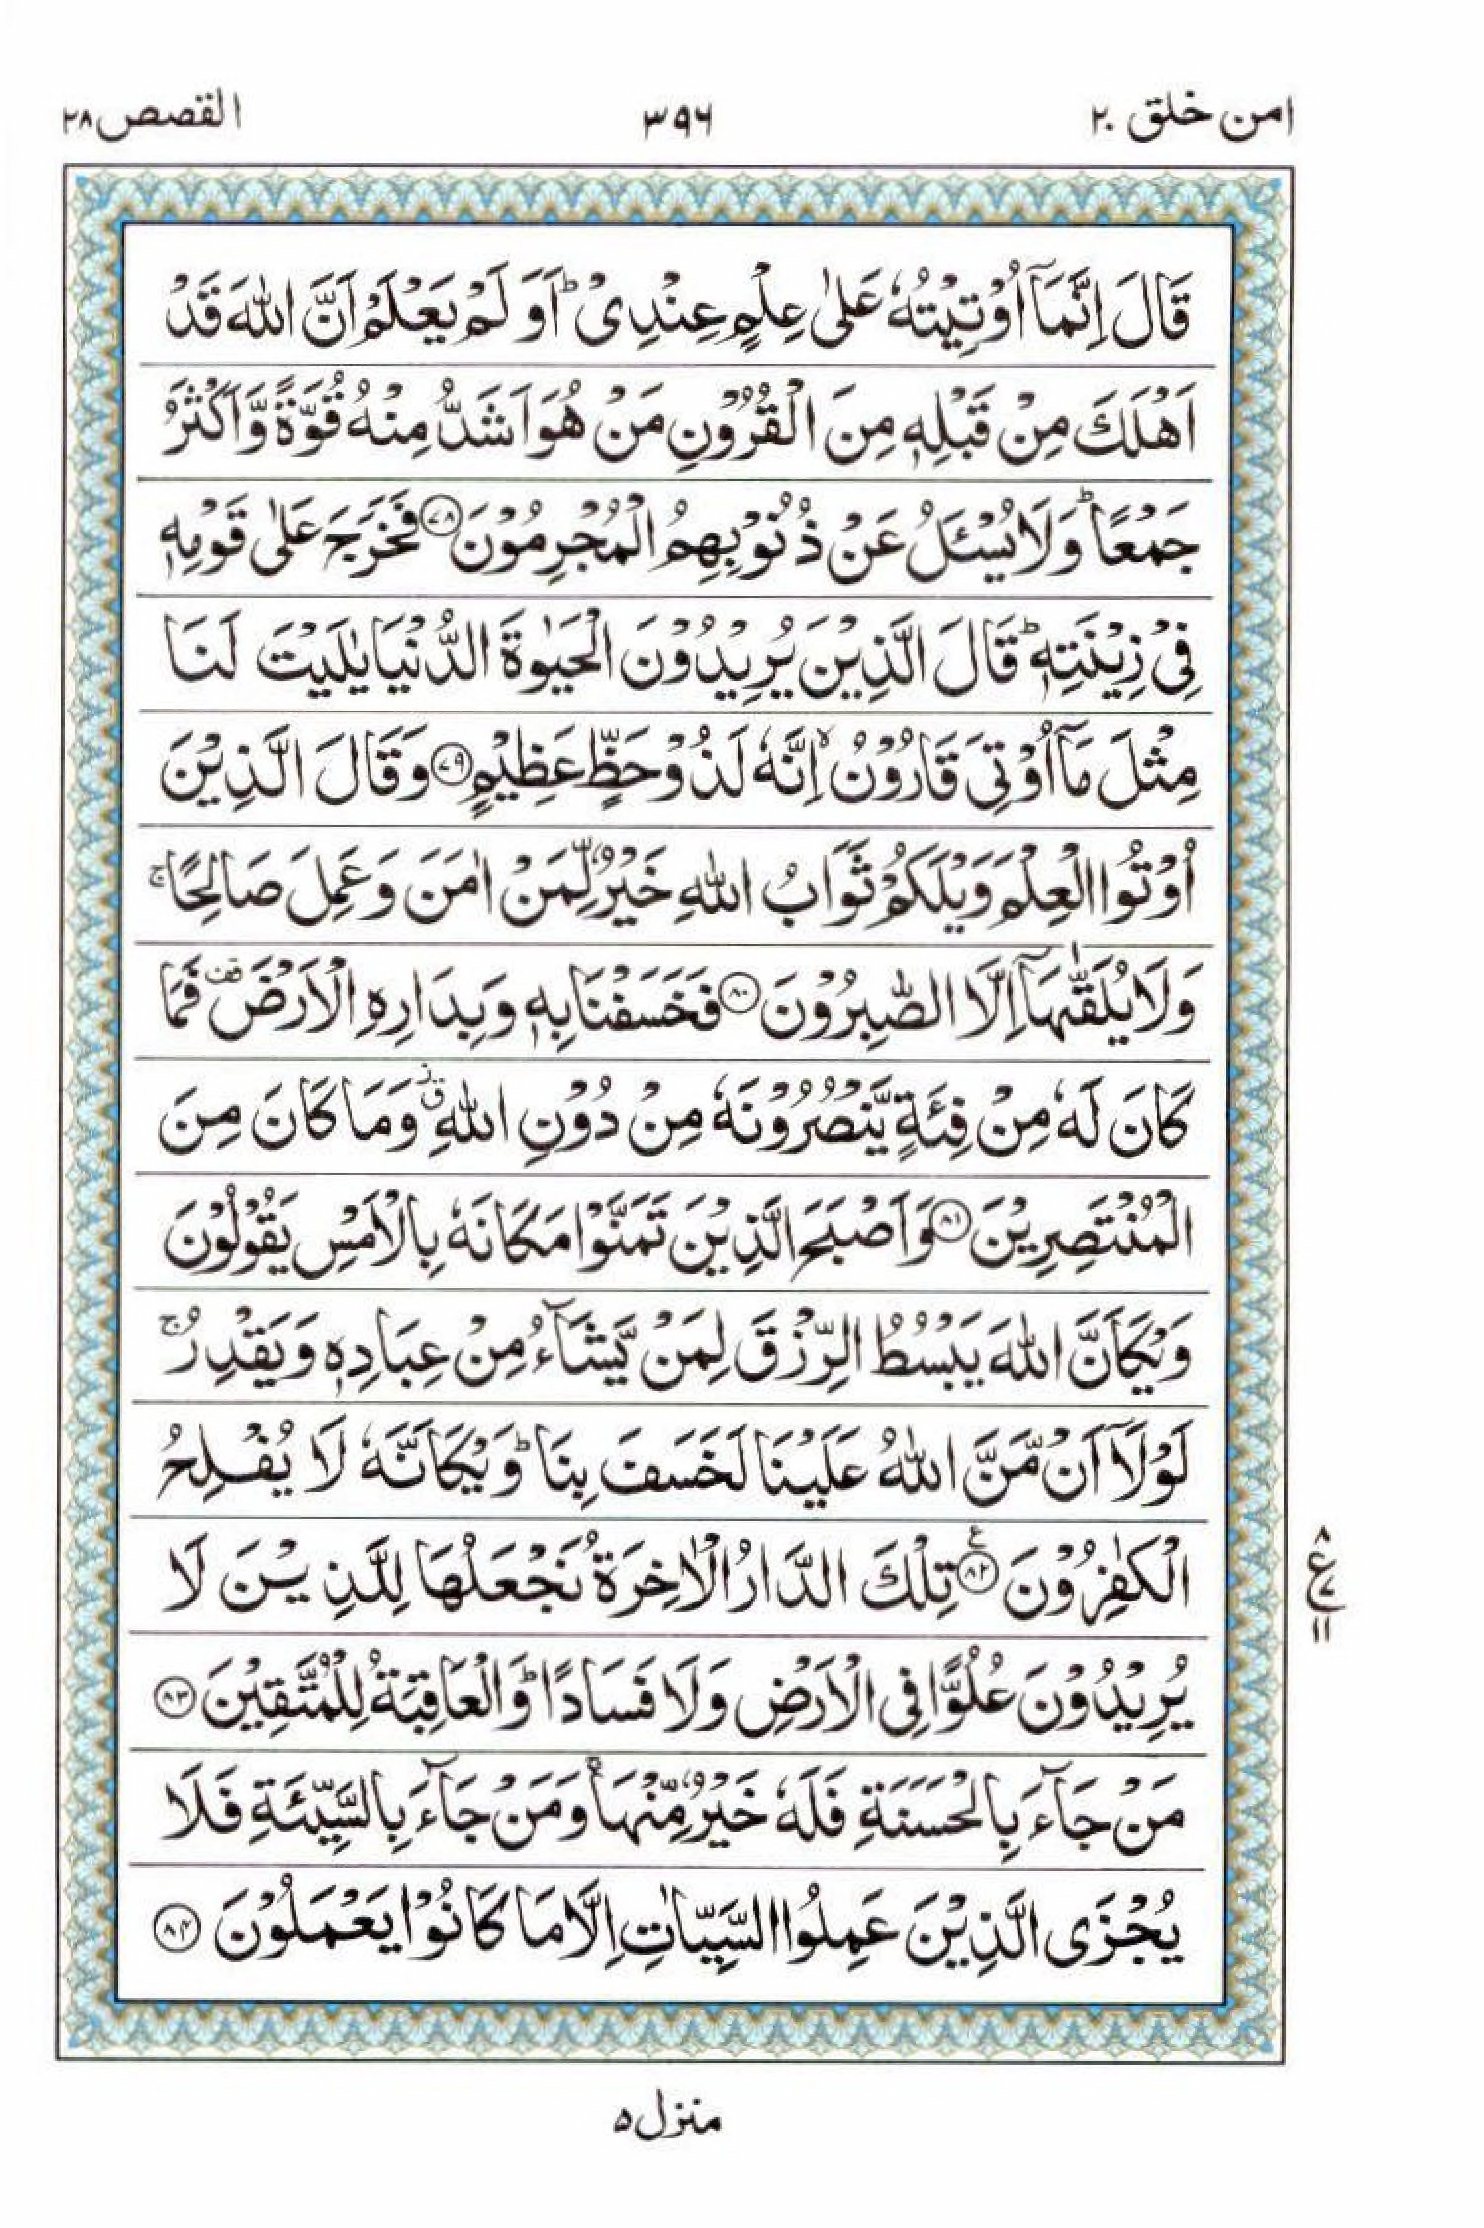 امن خلق ۲۰ ۳۹۶ القصص ۲۸
قَالَ اِنَّمَاۤ اُوْتِیْتُهٗ عَلٰی عِلْمٍ عِنْدِیْ ؕ اَوَ لَمْ یَعْلَمْ اَنَّ اللّٰهَ قَدْ
اَهْلَكَ مِنْ قَبْلِهٖ مِنَ الْقُرُوْنِ مَنْ هُوَ اَشَدُّ مِنْهُ قُوَّةً وَّ اَكْثَرُ
جَمْعًا ؕ وَ لَا یُسْـَٔلُ عَنْ ذُنُوْبِهِمُ الْمُجْرِمُوْنَ ﴿۷۸﴾ فَخَرَجَ عَلٰی قَوْمِهٖ
فِیْ زِیْنَتِهٖ ؕ قَالَ الَّذِیْنَ یُرِیْدُوْنَ الْحَیٰوةَ الدُّنْیَا یٰلَیْتَ لَنَا
مِثْلَ مَاۤ اُوْتِیَ قَارُوْنُ ۙ اِنَّهٗ لَذُوْ حَظٍّ عَظِیْمٍ ﴿۷۹﴾ وَ قَالَ الَّذِیْنَ
اُوْتُوا الْعِلْمَ وَیْلَكُمْ ثَوَابُ اللّٰهِ خَیْرٌ لِّمَنْ اٰمَنَ وَ عَمِلَ صَالِحًا ۚ
وَ لَا یُلَقّٰىهَاۤ اِلَّا الصّٰبِرُوْنَ ﴿۸۰﴾ فَخَسَفْنَا بِهٖ وَ بِدَارِهِ الْاَرْضَ ۫ فَمَا
كَانَ لَهٗ مِنْ فِئَةٍ یَّنْصُرُوْنَهٗ مِنْ دُوْنِ اللّٰهِ ۗ وَ مَا كَانَ مِنَ
الْمُنْتَصِرِیْنَ ﴿۸۱﴾ وَ اَصْبَحَ الَّذِیْنَ تَمَنَّوْا مَكَانَهٗ بِالْاَمْسِ یَقُوْلُوْنَ
وَیْكَاَنَّ اللّٰهَ یَبْسُطُ الرِّزْقَ لِمَنْ یَّشَآءُ مِنْ عِبَادِهٖ وَ یَقْدِرُ ۚ
لَوْ لَاۤ اَنْ مَّنَّ اللّٰهُ عَلَیْنَا لَخَسَفَ بِنَا ؕ وَیْكَاَنَّهٗ لَا یُفْلِحُ
الْكٰفِرُوْنَ ﴿۸۲﴾ تِلْكَ الدَّارُ الْاٰخِرَةُ نَجْعَلُهَا لِلَّذِیْنَ لَا
۸ ع ۷ ۱۱
یُرِیْدُوْنَ عُلُوًّا فِی الْاَرْضِ وَ لَا فَسَادًا ؕ وَ الْعَاقِبَةُ لِلْمُتَّقِیْنَ ﴿۸۳﴾
مَنْ جَآءَ بِالْحَسَنَةِ فَلَهٗ خَیْرٌ مِّنْهَا ۚ وَ مَنْ جَآءَ بِالسَّیِّئَةِ فَلَا
یُجْزَی الَّذِیْنَ عَمِلُوا السَّیِّاٰتِ اِلَّا مَا كَانُوْا یَعْمَلُوْنَ ﴿۸۴﴾
منزل ۵